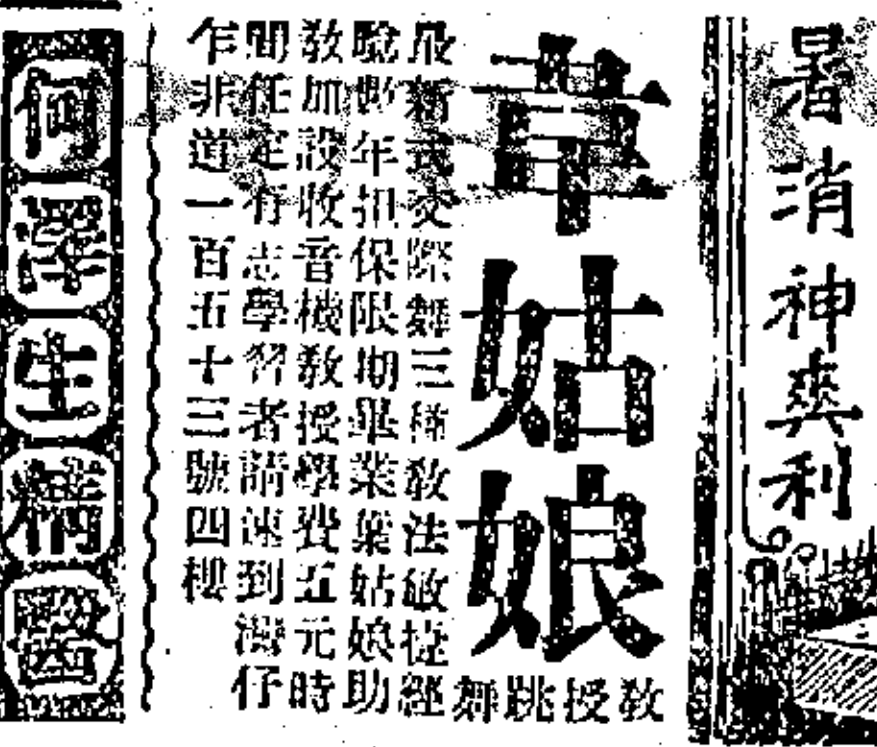 暑消神爽利
韋姑娘
教授跳舞
最新式交際舞三種教法敏捷經
驗數年担保限期畢業葉姑娘助
教加設收音機教授學費五元時
間任定有志學習者請速到灣仔
乍非道一百五十三號四樓
何澤生橋醫